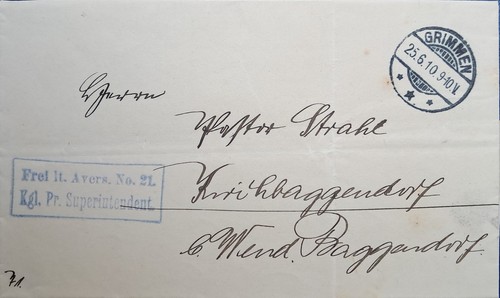 GRIMMEN
25.6.10.9-10V.
Herrn
Pastor Strahl
Frei lt. Avers. No. 21.
Kgl. Pr. Superintendent.
Kirchbaggendorf
b. Wend. Baggendorf.